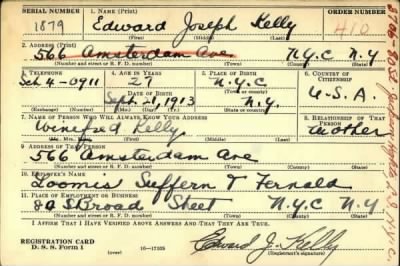 SERIAL NUMBER 1. NAME (Print) ORDER NUMBER
1879 Edward Joseph Kelly 410
(First) (Middle) (Last)
2. ADDRESS (Print)
566 Amsterdam Ave N.Y.C N.Y
(Number and street or R. F. D. number) (Town) (County) (State)
3. TELEPHONE 4. AGE IN YEARS 5. PLACE OF BIRTH 6. COUNTRY OF CITIZENSHIP
4-0911 27 N.Y.C
DATE OF BIRTH
Sept. 21, 1913 N.Y. U.S.A.
(Exchange) (Number) (Mo.) (Day) (Yr.) (State or country)
7. NAME OF PERSON WHO WILL ALWAYS KNOW YOUR ADDRESS 8. RELATIONSHIP OF THAT PERSON
Winifred Kelly Mother
(First) (Middle) (Last)
9. ADDRESS OF THAT PERSON
566 Amsterdam Ave
(Number and street or R. F. D. number) (Town) (County) (State)
10. EMPLOYER'S NAME
Loomis Suffern & Fernald
11. PLACE OF EMPLOYMENT OR BUSINESS
80 Broad Street N.Y.C N.Y.
(Number and street or R. F. D. number) (Town) (County) (State)
I AFFIRM THAT I HAVE VERIFIED ABOVE ANSWERS AND THAT THEY ARE TRUE.
REGISTRATION CARD
D. S. S. Form 1 (over) 16—17105 Edward J. Kelly
(Registrant's signature)